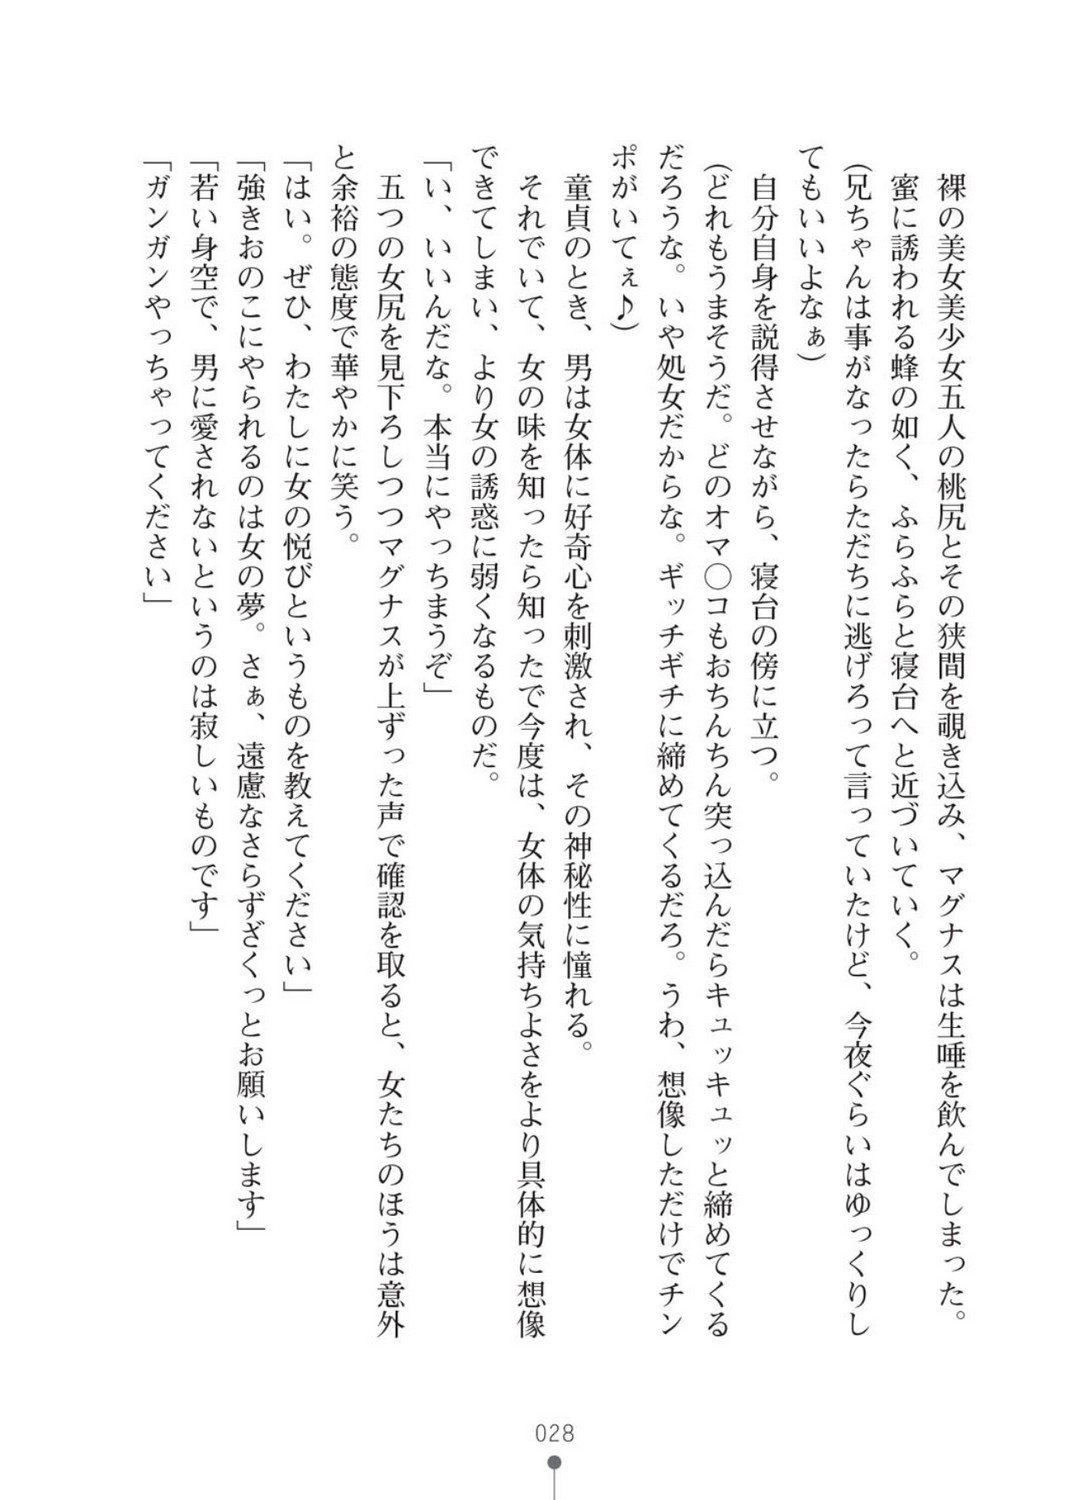 裸の美女美少女五人の桃尻とその狭間を覗き込み、マグナスは生唾を飲んでしまった。
蜜に誘われる蜂の如く、ふらふらと寝台へと近づいていく。
(兄ちゃんは事がなったらただちに逃げろって言っていたけど、今夜ぐらいはゆっくりし
てもいいよなぁ)
自分自身を説得させながら、寝台の傍に立つ。
(どれもうまそうだ。どのオマ〇コもおちんちん突っ込んだらキュッキュッと締めてくる
だろうな。いや処女だからな。ギッチギチに締めてくるだろ。うわ、想像しただけでチン
ポがいてぇ♪)
童貞のとき、男は女体に好奇心を刺激され、その神秘性に憧れる。
それでいて、女の味を知ったら知ったで今度は、女体の気持ちよさをより具体的に想像
できてしまい、より女の誘惑に弱くなるものだ。
「い、いいんだな。本当にやっちまうぞ」
五つの女尻を見下ろしつつマグナスが上ずった声で確認を取ると、女たちのほうは意外
と余裕の態度で華やかに笑う。
「はい。ぜひ、わたしに女の悦びというものを教えてください」
「強きおのこにやられるのは女の夢。さぁ、遠慮なさらずざくっとお願いします」
「若い身空で、男に愛されないというのは寂しいものです」
「ガンガンやっちゃってください」
028